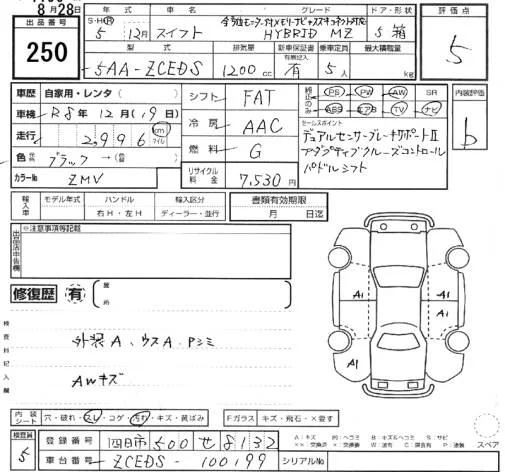 8月28日
出品番号
250
年式 車名 グレード ドア・形状 評価点
S・H・R
5年 12月 スイフト HYBRID MZ 5 箱 5
型式 排気量 新車保証書 乗車定員 最大積載量
有無記入
5AA-ZCEDS 1200cc 有 5人 kg
車歴 自家用・レンタ( )
車検 R8年12月(19日)
走行 2,996 km マイル
色 ブラック→( )
カラーNo ZMV
シフト FAT
冷房 AAC
燃料 G
リサイクル料金 7,530円
純正のみ PS PW AW SR
ABS エアB TV ナビ
セールスポイント
デュアルセンサーブレーキサポートⅡ
アダプティブクルーズコントロール
パドルシフト
内装評価
b
輸入車 モデル年式 ハンドル 輸入区分
右H・左H ディーラー・並行
書類有効期限
月 日迄
出品店申告欄 ※注意事項等記載
修復歴 有 箇所
検査員記入欄
外装A、ウスA、Pシミ
AWキズ
A1 A1
A1
内装シート 穴・破れ・スレ・コゲ・汚れ・キズ・黄ばみ Fガラス キズ・飛石・×要す
検査員
5
登録番号 四日市500せ8132
車台番号 ZCEDS-100199 シリアルNo
A:キズ
スペア